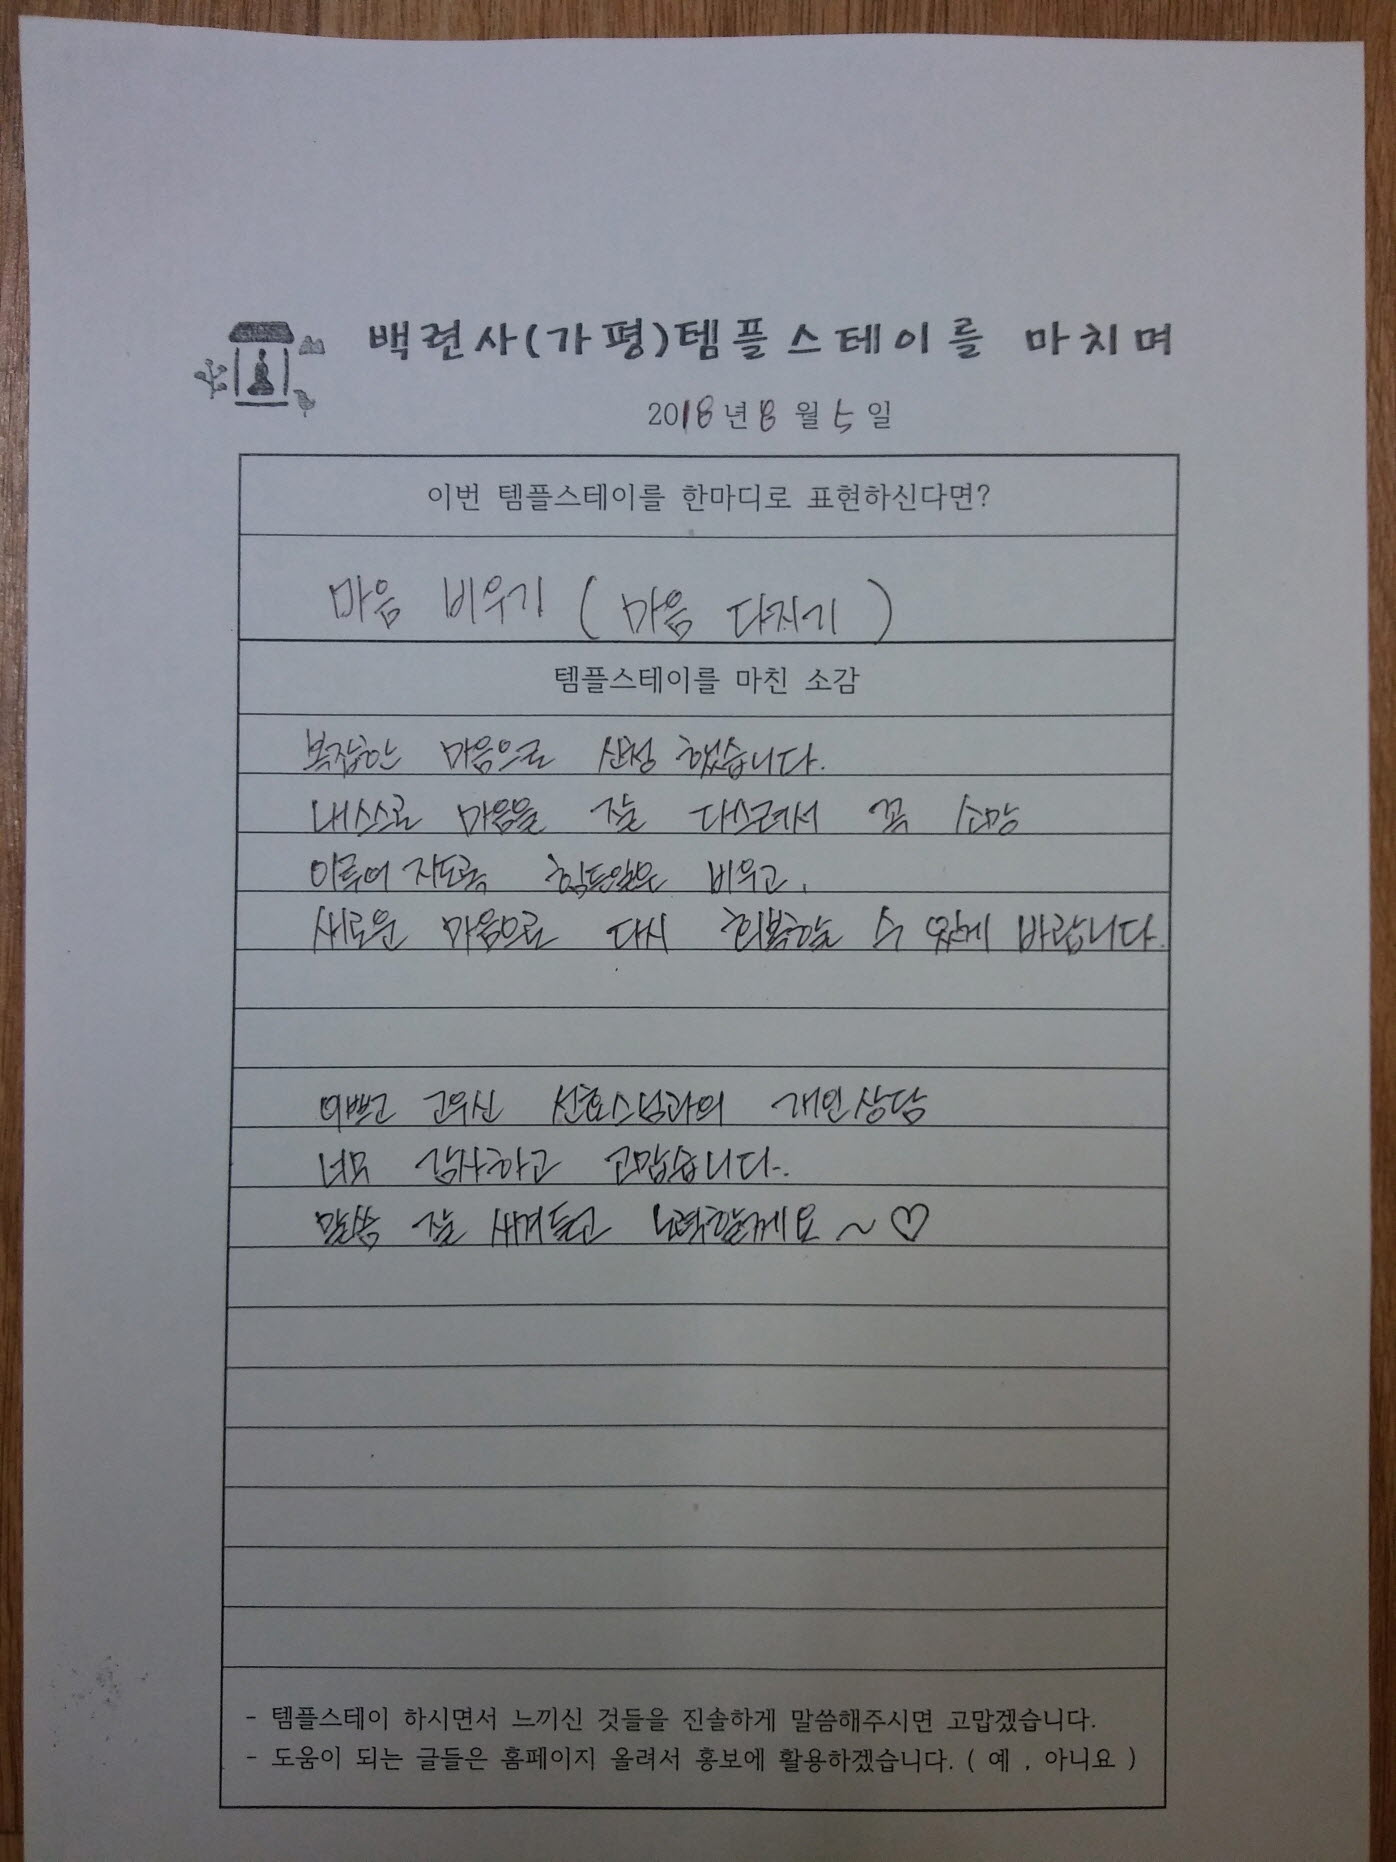 백련사(가평)템플스테이를 마치며
2018년 8월 5일
이번 템플스테이를 한마디로 표현하신다면?
마음 비우기 ( 마음 다지기 )
템플스테이를 마친 소감
복잡한 마음으로 신청 했습니다.
내스스로 마음을 잘 다스려서 꼭 소망
이루어 지도록 힘든일은 비우고,
새로운 마음으로 다시 회복하는 수 있게 바랍니다.
이쁘고 고우신 선효스님과의 개인상담
너무 감사하고 고맙습니다..
말씀 잘 새겨듣고 노력할게요 ~ ♡
- 템플스테이 하시면서 느끼신 것들을 진솔하게 말씀해주시면 고맙겠습니다.
- 도움이 되는 글들은 홈페이지 올려서 홍보에 활용하겠습니다. ( 예 , 아니요 )